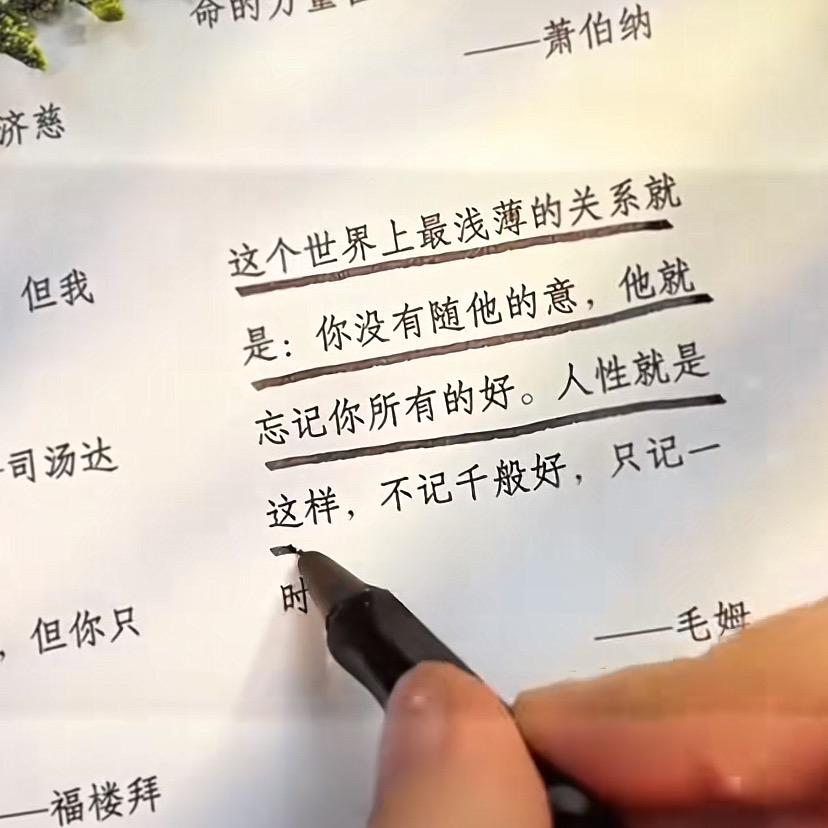 命的力量
——萧伯纳
济慈
但我
司汤达
，但你只
——福楼拜
这个世界上最浅薄的关系就
是：你没有随他的意，他就
忘记你所有的好。人性就是
这样，不记千般好，只记一
时
——毛姆